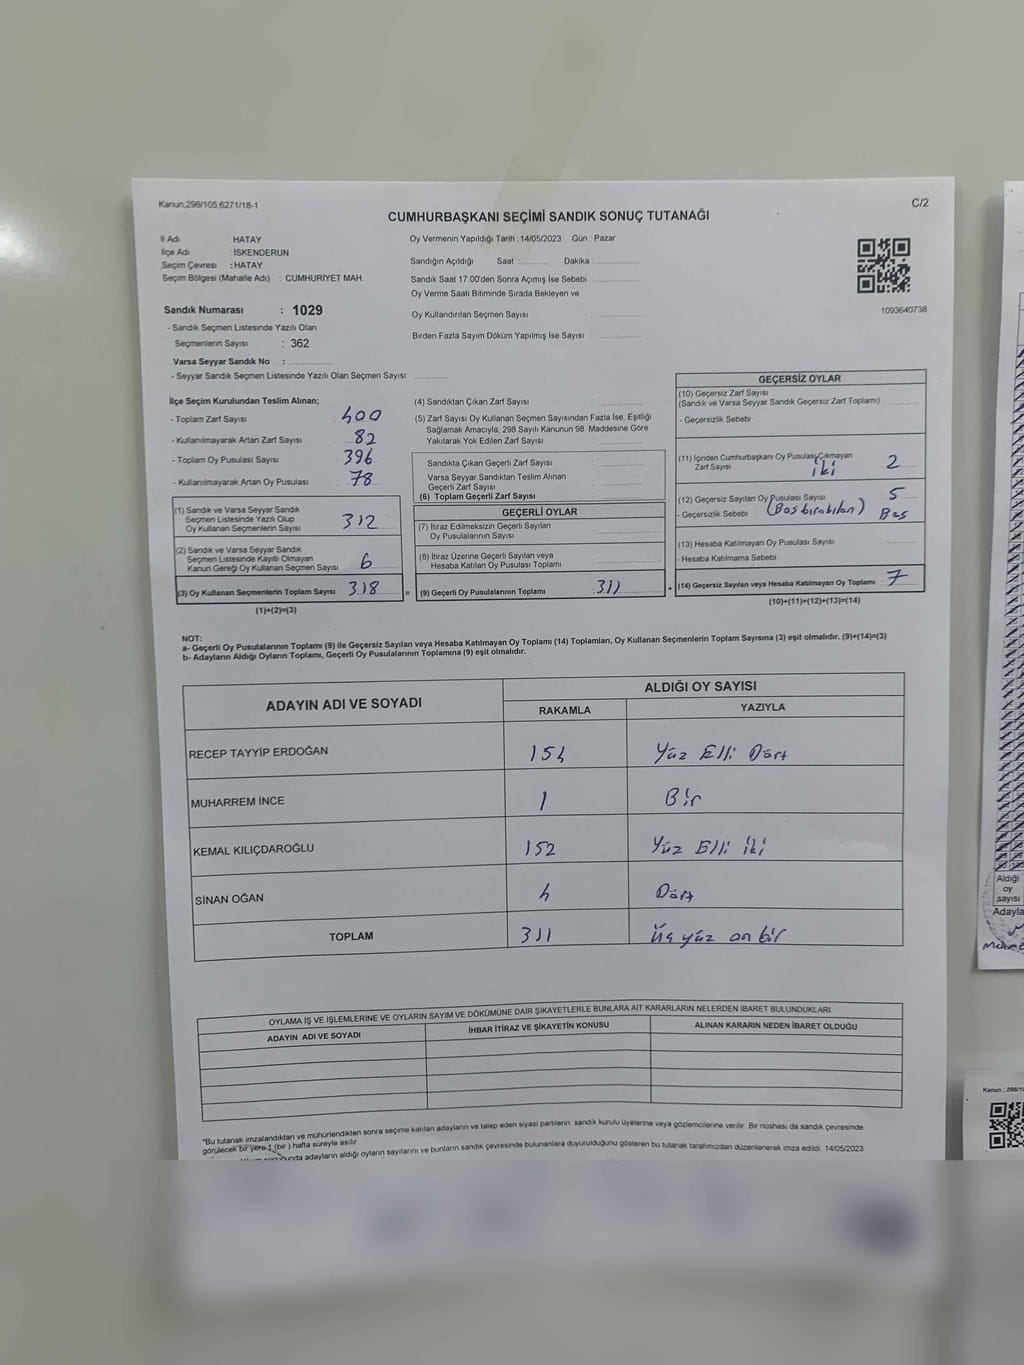 Kanun;298/105,6271/18-1
C/2
CUMHURBAŞKANI SEÇİMİ SANDIK SONUÇ TUTANAĞI
İl Adı : HATAY
İlçe Adı : İSKENDERUN
Seçim Çevresi : HATAY
Seçim Bölgesi (Mahalle Adı) : CUMHURİYET MAH.
Sandık Numarası : 1029
- Sandık Seçmen Listesinde Yazılı Olan
Seçmenlerin Sayısı : 362
Varsa Seyyar Sandık No :
- Seyyar Sandık Seçmen Listesinde Yazılı Olan Seçmen Sayısı
Oy Vermenin Yapıldığı Tarih : 14/05/2023 Gün : Pazar
Sandığın Açıldığı Saat : Dakika :
Sandık Saat 17:00'den Sonra Açımış İse Sebebi :
Oy Verme Saati Bitiminde Sırada Bekleyen ve
Oy Kullandırılan Seçmen Sayısı :
Birden Fazla Sayım Döküm Yapılmış İse Sayısı :
1093640736
İlçe Seçim Kurulundan Teslim Alınan;
- Toplam Zarf Sayısı : 400
- Kullanılmayarak Artan Zarf Sayısı : 82
- Toplam Oy Pusulası Sayısı : 396
- Kullanılmayarak Artan Oy Pusulası : 78
(1) Sandık ve Varsa Seyyar Sandık
Seçmen Listesinde Yazılı Olup
Oy Kullanan Seçmenlerin Sayısı : 312
(2) Sandık ve Varsa Seyyar Sandık
Seçmen Listesinde Kayıtlı Olmayan
Kanun Gereği Oy Kullanan Seçmen Sayısı : 6
(3) Oy Kullanan Seçmenlerin Toplam Sayısı : 318
(1)+(2)=(3)
(4) Sandıktan Çıkan Zarf Sayısı :
(5) Zarf Sayısı Oy Kullanan Seçmen Sayısından Fazla İse, Eşitliği
Sağlamak Amacıyla; 298 Sayılı Kanunun 98. Maddesine Göre
Yakılarak Yok Edilen Zarf Sayısı :
Sandıkta Çıkan Geçerli Zarf Sayısı :
Varsa Seyyar Sandıktan Teslim Alınan
Geçerli Zarf Sayısı :
(6) Toplam Geçerli Zarf Sayısı :
GEÇERLİ OYLAR
(7) İtiraz Edilmeksizin Geçerli Sayılan
Oy Pusulalarının Sayısı :
(8) İtiraz Üzerine Geçerli Sayılan veya
Hesaba Katılan Oy Pusulası Toplamı :
(9) Geçerli Oy Pusulalarının Toplamı : 311
GEÇERSİZ OYLAR
(10) Geçersiz Zarf Sayısı
(Sandık ve Varsa Seyyar Sandık Geçersiz Zarf Toplamı) :
- Geçersizlik Sebebi :
(11) İçinden Cumhurbaşkanı Oy Pusulası Çıkmayan
Zarf Sayısı iki 2
(12) Geçersiz Sayılan Oy Pusulası Sayısı 5
- Geçersizlik Sebebi : Beş
(13) Hesaba Katılmayan Oy Pusulası Sayısı :
- Hesaba Katılmama Sebebi :
(14) Geçersiz Sayılan veya Hesaba Katılmayan Oy Toplamı : 7
(10)+(11)+(12)+(13)=(14)
NOT:
a- Geçerli Oy Pusulalarının Toplamı (9) ile Geçersiz Sayılan veya Hesaba Katılmayan Oy Toplamı (14) Toplamları, Oy Kullanan Seçmenlerin Toplam Sayısına (3) eşit olmalıdır. (9)+(14)=(3)
b- Adayların Aldığı Oyların Toplamı, Geçerli Oy Pusulalarının Toplamına (9) eşit olmalıdır.
ADAYIN ADI VE SOYADI
ALDIĞI OY SAYISI
RAKAMLA YAZIYLA
RECEP TAYYİP ERDOĞAN 154 Yüz Elli Dört
MUHARREM İNCE 1 Bir
KEMAL KILIÇDAROĞLU 152 Yüz Elli iki
SİNAN OĞAN 4 Dört
TOPLAM 311 Üç yüz on bir
OYLAMA İŞ VE İŞLEMLERİNE VE OYLARIN SAYIM VE DÖKÜMÜNE DAİR ŞİKAYETLERLE BUNLARA AİT KARARLARIN NELERDEN İBARET BULUNDUKLARI
ADAYIN ADI VE SOYADI İHBAR İTİRAZ VE ŞİKAYETİN KONUSU ALINAN KARARIN NEDEN İBARET OLDUĞU
*Bu tutanak imzalandıktan ve mühürlendikten sonra seçime katılan adayların ve talep eden siyasi partilerin sandık kurulu üyelerine veya gözlemcilerine verilir. Bir nüshası da sandık çevresinde
görülecek bir yere 1 (bir ) hafta süreyle asılır.
adayların aldığı oyların sayılarını ve bunların sandık çevresinde bulunanlara duyurulduğunu gösteren bu tutanak tarafımızdan düzenlenerek imza edildi. 14/05/2023
Aldığı
oy
sayısı
Adayla
Kanun ; 298/1